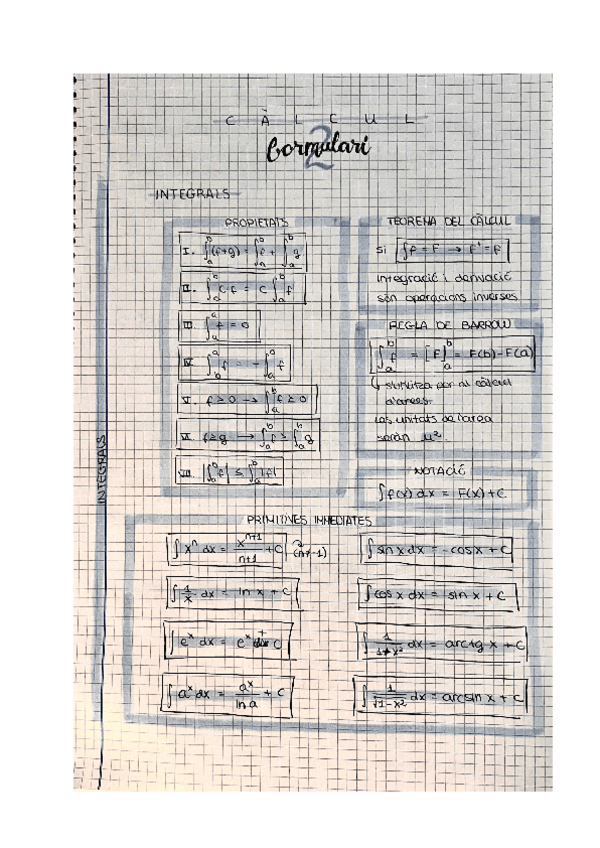 CÀLCUL
2
Formulari
INTEGRALS
INTEGRALS
PROPIETATS
I. ∫_a^b (f+g) = ∫_a^b f + ∫_a^b g
II. ∫_a^b c·f = c ∫_a^b f
III. ∫_a^a f = 0
IV. ∫_b^a f = - ∫_a^b f
V. f ≥ 0 → ∫_a^b f ≥ 0
VI. f ≥ g → ∫_a^b f ≥ ∫_a^b g
VII. |∫_a^b f| ≤ ∫_a^b |f|
TEOREMA DEL CÀLCUL
Si ∫f = F → F' = f
integració i derivació
són operacions inverses
REGLA DE BARROW
∫_a^b f = [F]_a^b = F(b) - F(a)
↳ s'utilitza per al càlcul
d'àrees.
Les unitats de l'àrea
seran u².
NOTACIÓ
∫f(x) dx = F(x) + C
PRIMITIVES IMMEDIATES
∫ xⁿ dx = xⁿ⁺¹/n+1 + C (n≠-1)
∫ 1/x dx = ln x + C
∫ eˣ dx = eˣ + C
∫ aˣ dx = aˣ/ln a + C
∫ sin x dx = - cos x + C
∫ cos x dx = sin x + C
∫ 1/1+x² dx = arctg x + C
∫ 1/√1-x² dx = arcsin x + C